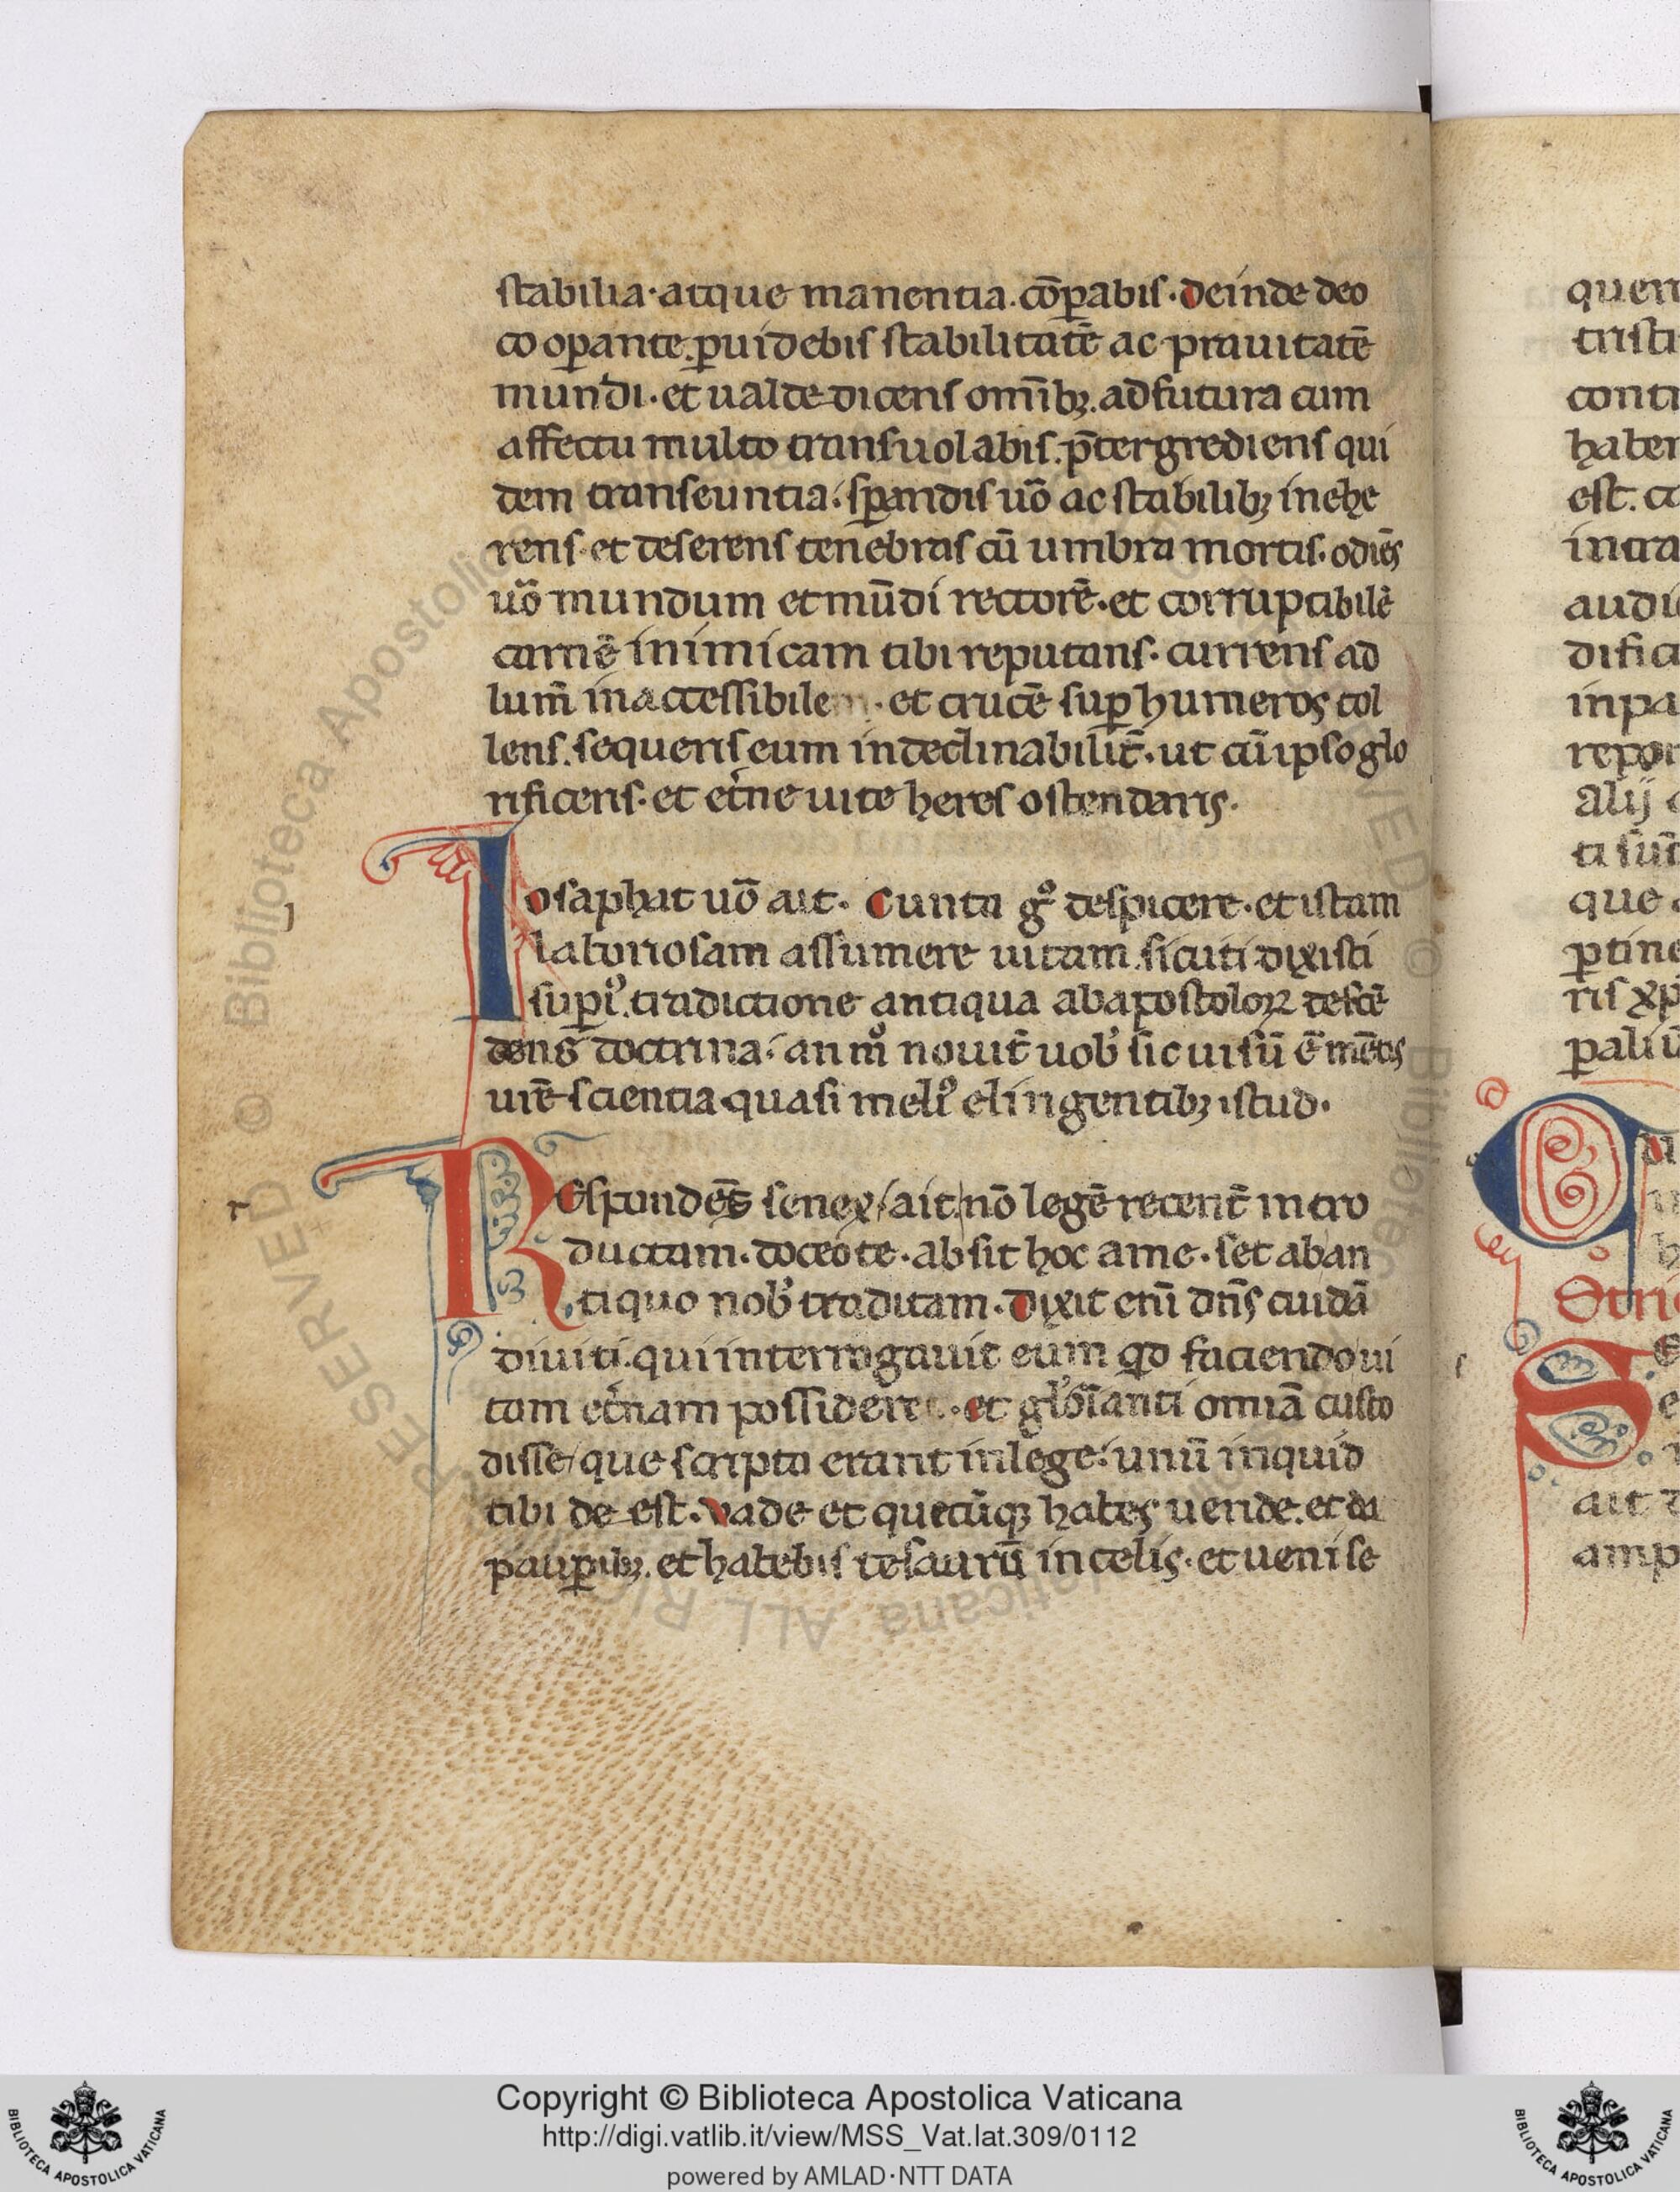 stabilia·atque manentia.cōꝑabis·deinde deo
co oꝑante.ꝑuidebis stabilitatē ac prauitatē
mundi·et ualde dicens om̄ibꝫ.ad futura cum
affectu multo transuolabis.p̄tergrediens qui
dem transeuntia·sꝑandis uō ac stabilibꝫ inehe
rens·et deserens tenebras cū umbra mortis·odiēs
uō mundum et mūdi rectorē·et corruptibilē
carnē inimicam tibi reputans·currens ad
lum̄ inaccessibilem·et crucē suꝑ humeros tol
lens.sequeris eum indeclinabilit̄·ut cū ipso glo
rificeris·et et̓ne uite heres ostendaris.
Iosaphat uō ait· Cunta gͦ despicere·et istam
laboriosam assumere uitam.sicuti dixisti
suꝑiͦ.tradictione antiqua ab apostoloꝝ descē
dens doctrina·an mͦ nouit̄ uob̓ sic uisū ē mētis
ur̄e scientia quasi meliͦ elingentibꝫ istud·
REspondēs senex/ait nō legē recent̄ intro
ductam·doceo te·absit hoc a me·set ab an
tiquo nob̓ traditam·Dixit enī dn̄s cuidā
diuiti.qui interrogauit eum qd faciendo ui
tam et̓nam possidere·et gl̓oianti omīa custo
disse/que scripta erant in lege·unū inquid
tibi de est·Vade et quecūqꝫ habes uende.et da
pauꝑibꝫ.et habebis tesaurū in celis·et ueni se
r
Copyright © Biblioteca Apostolica Vaticana
http://digi.vatlib.it/view/MSS_Vat.lat.309/0112
powered by AMLAD·NTT DATA
BIBLIOTECA APOSTOLICA VATICANA
BIBLIOTECA APOSTOLICA VATICANA